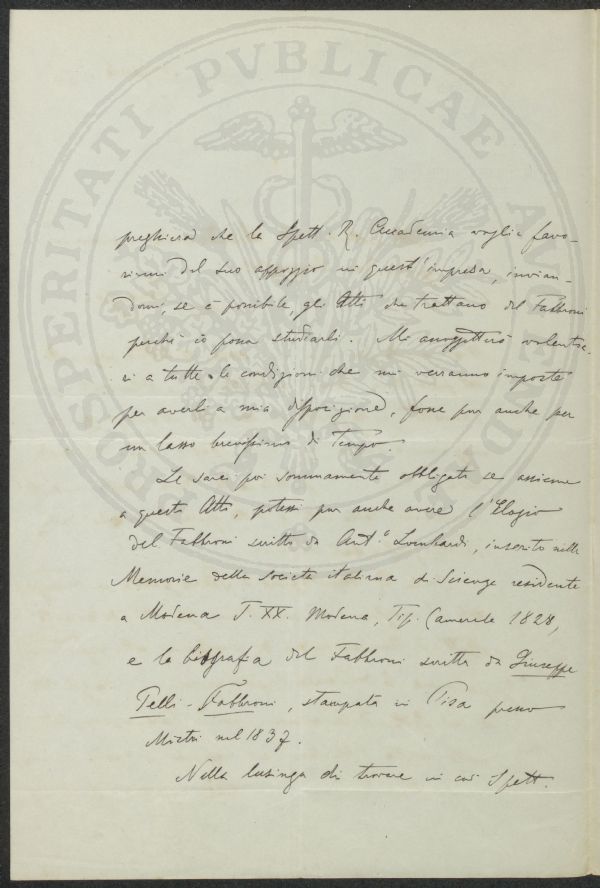 PROSPERITATI PVBLICAE AVGENDAE
preghiera che la Spett. R. Accademia voglia favo-
rirmi del suo appoggio in quest'impresa, invian-
domi, se è possibile, gli Atti che trattano del Fabbroni
perchè io possa studiarli. Mi assoggetterò volentie-
ri a tutte le condizioni che mi verranno imposte
per averli a mia disposizione, fosse pur anche per
un lasso brevissimo di tempo.
Le sarei poi sommamente obbligato se assieme
a questi Atti, potessi pur anche avere l'Elogio
del Fabbroni scritto da Ant.o Lombardi, inserito nelle
Memorie della società italiana di Scienze residente
a Modena T. XX. Modena, Tip. Camerale 1828,
e la biografia del Fabbroni scritta da Giuseppe
Pelli-Fabbroni, stampata in Pisa presso
nel 1837.
Nella lusinga di trovare in cod. Spett.